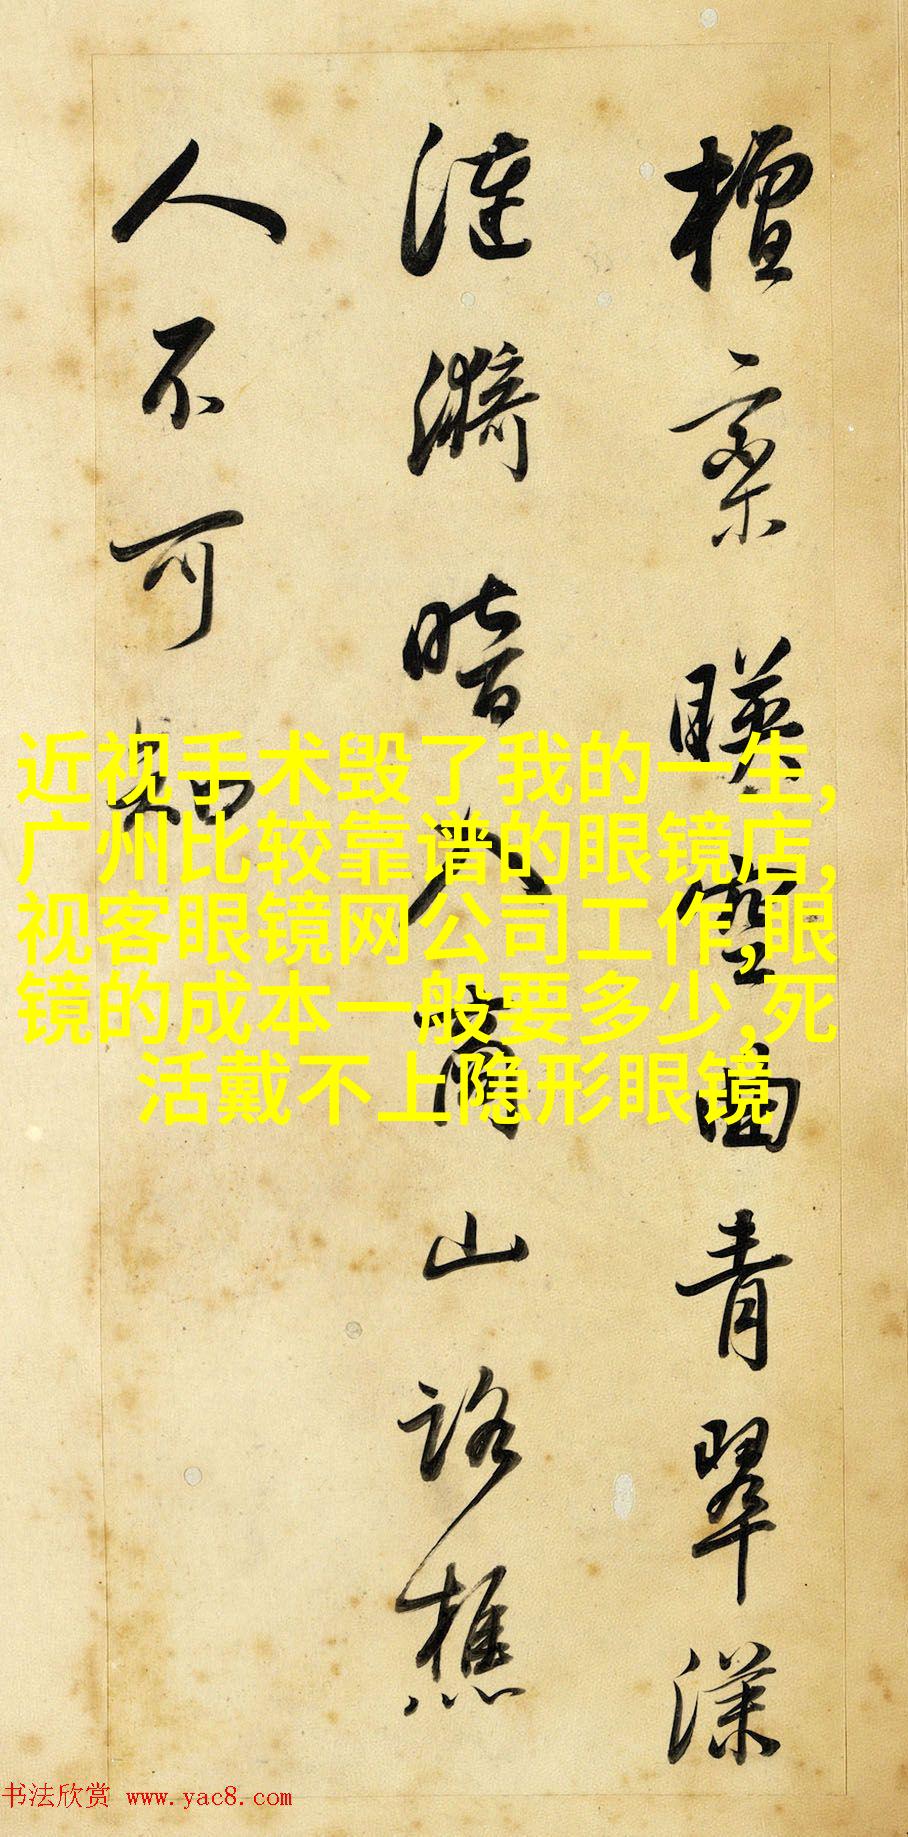 檀欒暎空曲青翠漾
漣漪暗入商山路樵
人不可知
近视手术毁了我的一生,
广州比较靠谱的眼镜店,
视客眼镜网公司工作,眼
镜的成本一般要多少,死
活戴不上隐形眼镜
书法欣赏 www.yac8.com